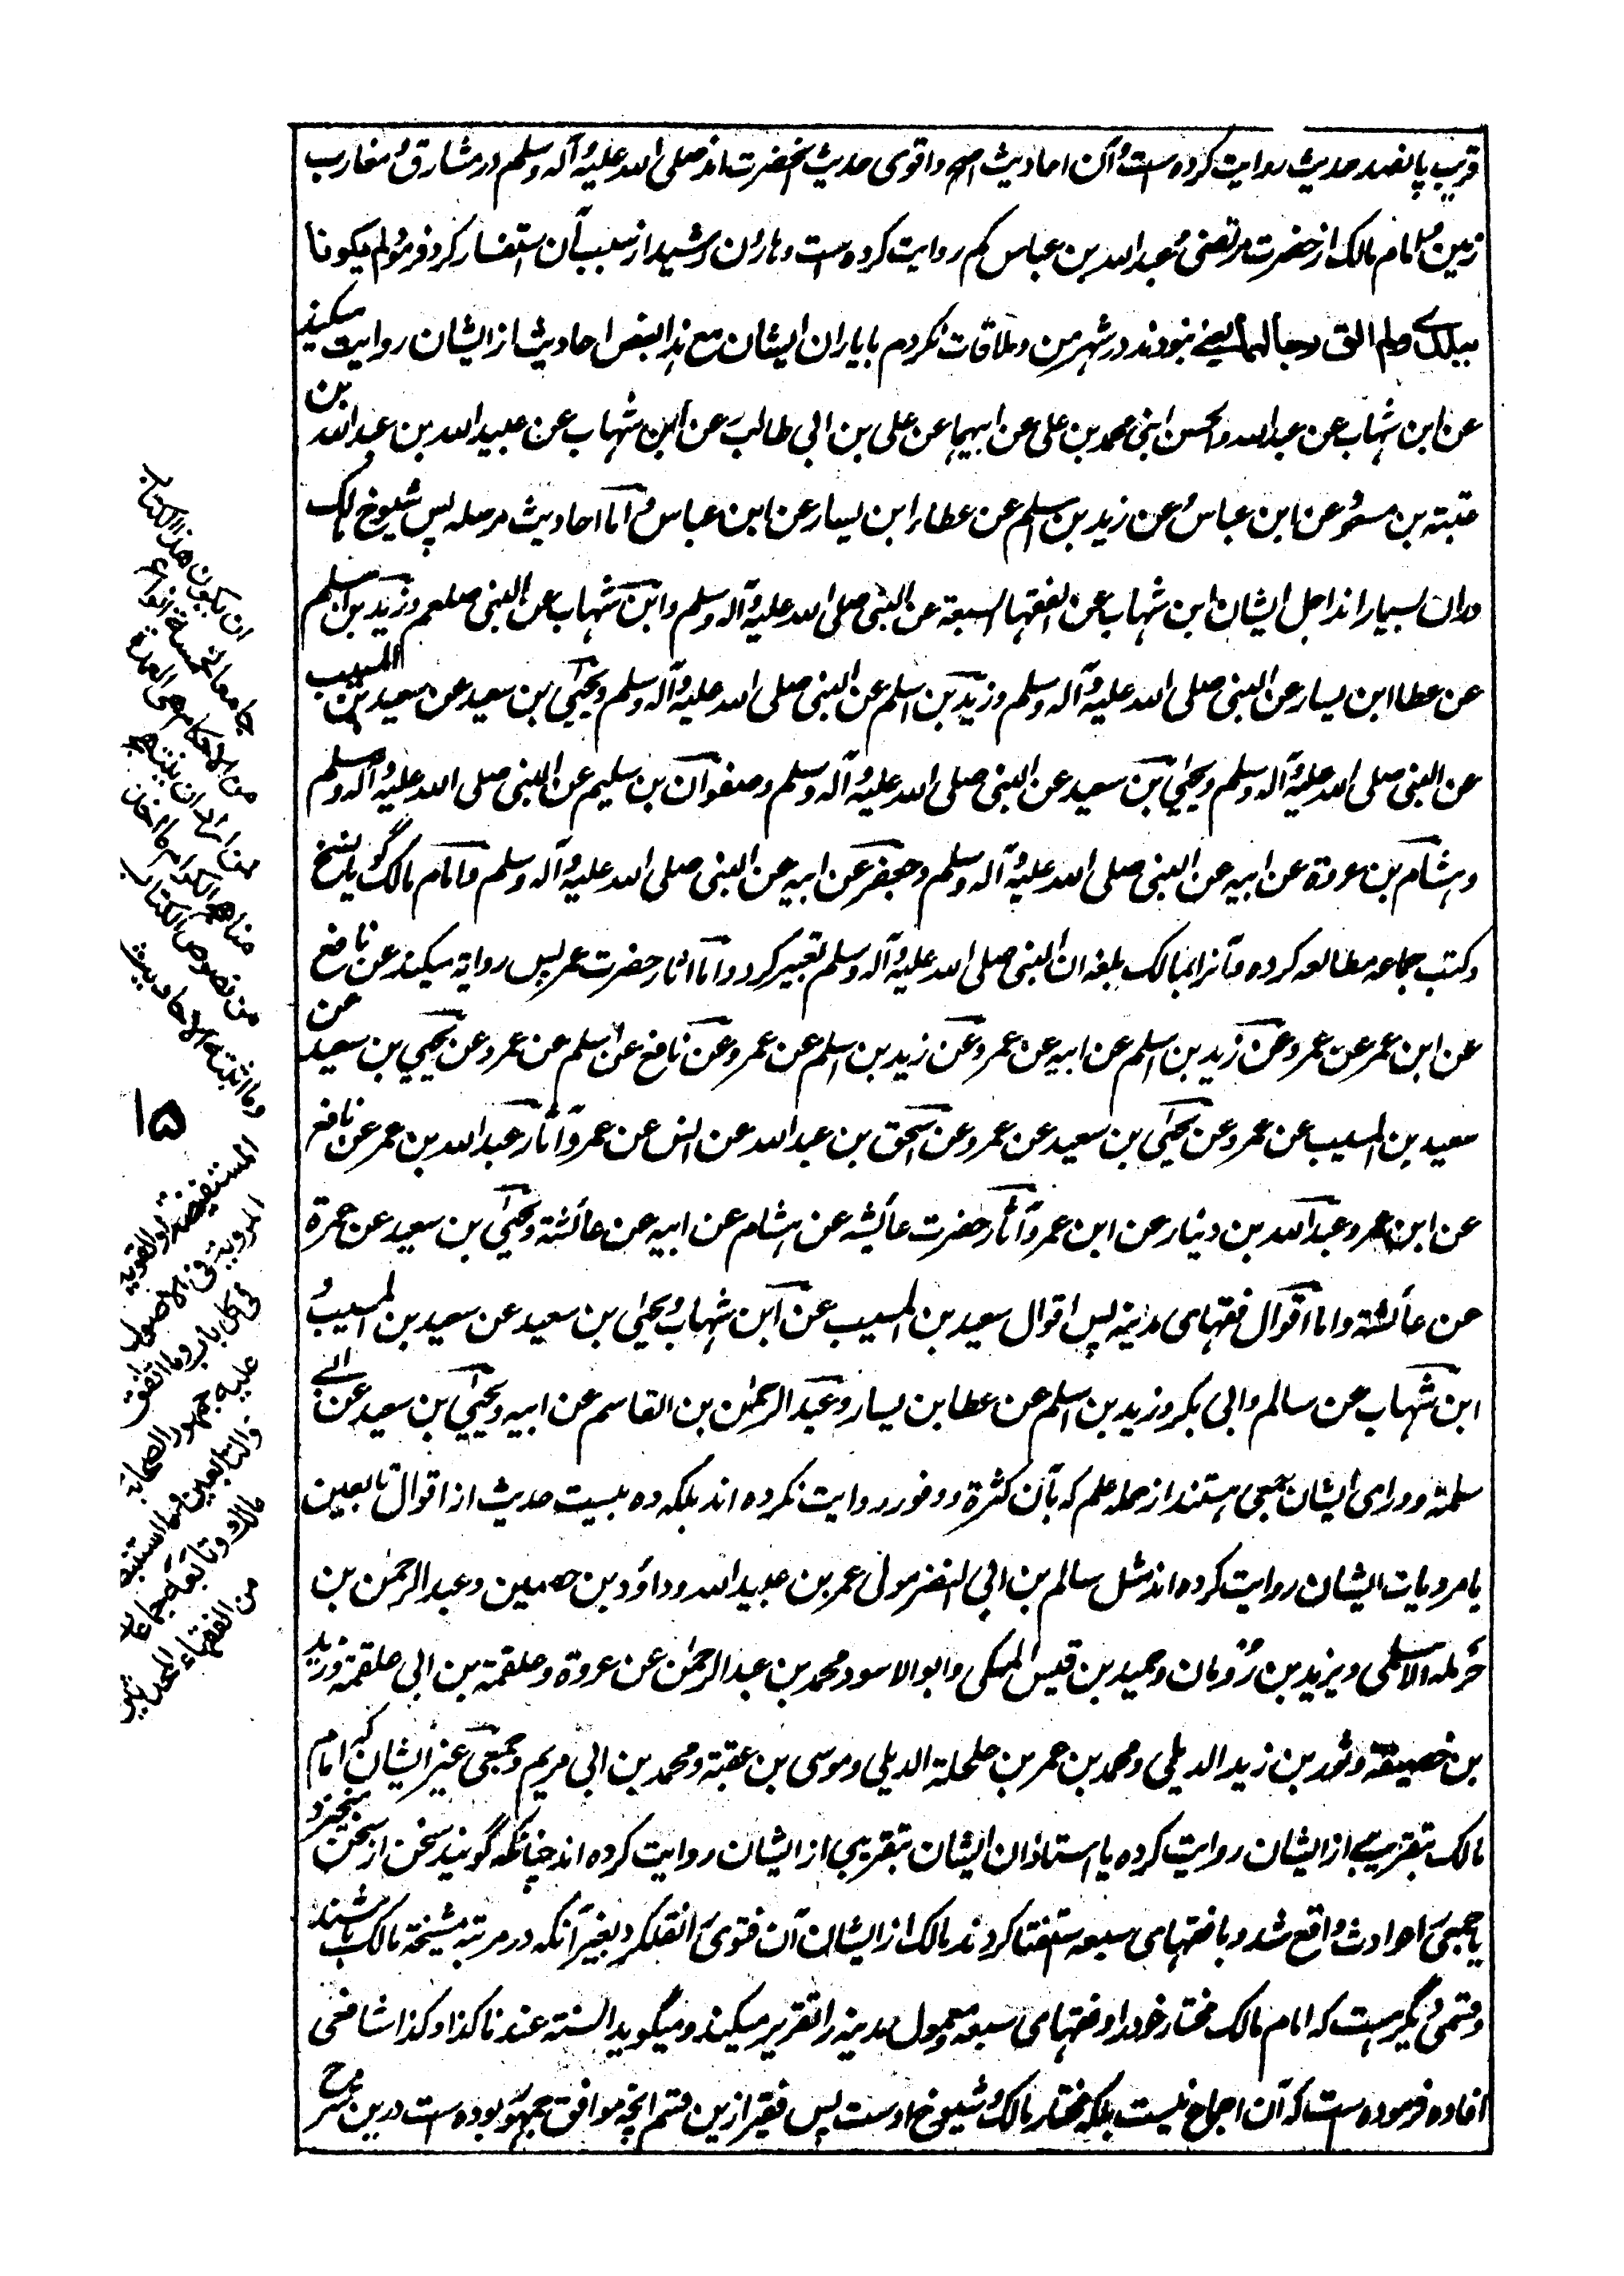 قریب پانصد حدیث روایت کرده است و آن احادیث اصح و اقوی حدیث آنحضرت اند صلی الله علیه و آله وسلم در مشارق و مغارب
زمین و امام مالک از حضرت مرتضی و عبدالله بن عباس کم روایت کرده است و هارون رشید از سبب آن استفسار کرد فرمود لم یکونا
ببلدی ولم الق رجالهما یعنی نبودند در شهر من و ملاقات نکردم با یاران ایشان مع هذا بعض احادیث از ایشان روایت میکند
عن ابن شهاب عن عبدالله والحسن ابنی محمد بن علی عن ابیهما عن علی بن ابی طالب وعن ابن شهاب عن عبیدالله بن عبدالله بن
عتبة بن مسعود عن ابن عباس و عن زید بن اسلم عن عطاء ابن یسار عن ابن عباس و اما احادیث مرسله پس شیوخ مالک
دران بسیار اند اجل ایشان ابن شهاب عن الفقهاء السبعة عن النبی صلی الله علیه وآله وسلم وابن شهاب عن النبی صلعم وزید بن اسلم
عن عطا ابن یسار عن النبی صلی الله علیه وآله وسلم وزید بن اسلم عن النبی صلی الله علیه وآله وسلم ویحیی بن سعید عن سعید بن المسیب
عن النبی صلی الله علیه وآله وسلم ویحیی بن سعید عن النبی صلی الله علیه وآله وسلم وصفوان بن سلیم عن النبی صلی الله علیه وآله وسلم
وهشام بن عروة عن ابیه عن النبی صلی الله علیه وآله وسلم وجعفر عن ابیه عن النبی صلی الله علیه وآله وسلم و امام مالک گویا نسخ
وکتب جماعه مطالعه کرده و آنرا بمالک بلغه ان النبی صلی الله علیه وآله وسلم تعبیر کرد و اما آثار حضرت عمر پس روایة میکند عن نافع
عن ابن عمر عن عمر وعن زید بن اسلم عن ابیه عن عمر وعن زید بن اسلم عن عمر وعن نافع عن اسلم عن عمر وعن یحیی بن سعید عن
سعید بن المسیب عن عمر وعن یحیی بن سعید عن عمر وعن اسحق بن عبدالله عن انس عن عمر و آثار عبدالله بن عمر عن نافع
عن ابن عمر وعبدالله بن دینار عن ابن عمر و آثار حضرت عائشه عن هشام عن ابیه عن عائشة ویحیی بن سعید عن عمرة
عن عائشة و اما اقوال فقهای مدینه پس اقوال سعید بن المسیب عن ابن شهاب و یحیی بن سعید عن سعید بن المسیب و
ابن شهاب عن سالم وابی بکر وزید بن اسلم عن عطا بن یسار وعبد الرحمن بن القاسم عن ابیه ویحیی بن سعید عن ابی
سلمة و ورای ایشان جمعی هستند از حمله علم که بآن کثرة و وفور روایت نکرده اند بلکه ده بیست حدیث از اقوال تابعین
یا مرویات ایشان روایت کرده اند مثل سالم بن ابی النضر مولی عمر بن عبیدالله و داؤد بن حصین وعبد الرحمن بن
حرمله الاسلمی ویزید بن رومان وحمید بن قیس المکی وابو الاسود محمد بن عبد الرحمن عن عروة وعلقمة بن ابی علقمة ویزید
بن خصیفة وثور بن زید الدیلی ومحمد بن عمر بن حلحلة الدیلی وموسی بن عقبة ومحمد بن ابی مریم وجمعی غیر ایشان که امام
مالک بتقریبی از ایشان روایت کرده یا استاذان ایشان بتقریبی از ایشان روایت کرده اند چنانکه گویند سخن از سخن میخیزد
یا جمعی را حوادث واقع شد و با فقهای سبعه استفتا کردند مالک از ایشان آن فتوی را نقل کرد بغیر آنکه در مرتبه مشیخة مالک باشند
و قسمی دیگر هست که امام مالک مختار خود را و فقهای سبعه و معمول مدینه را تقریر میکند و میگوید السنة عندنا کذا و کذا شافعی
افاده فرموده است که آن اجماع نیست بلکه مختار مالک و شیوخ اوست پس فقیر ازین قسم آنچه موافق جمهور بوده است درین شرح
ان یکون هذا الکتاب
جامعا لخمسة انواع
من الاحکام هی العمدة
من اراد ان ینتهج
مناهج الکرام کالخزان
من نصوص الکتاب
وما اثبته الاحادیث
۱۵
المستفیضة والقویة
المرویة فی الاصول
فی کل باب وما اتفق
علیه جمهور الصحابة
والتابعین وما استنبط
مالک وتابعه جماعات
من الفقهاء المحدثین